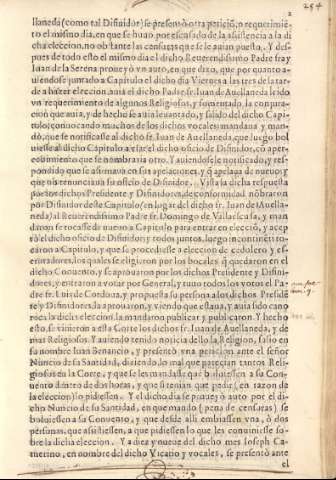 2
llaneda (como tal Difinidor) se presentò otra peticiõ, o requerimiẽ-
to el mismo dia, en que se huuo por escusado de la assistencia a la di
cha eleccion, no obstante las censuras que se le auian puesto. Y des
pues de todo esto el mismo dia el dicho Reuerendissimo Padre fray
Iuan de la Serena proueyò vn auto, en que dixo, que por quanto a-
uiendose juntado a Capitulo el dicho dia Viernes a las tres de la tar-
de a hazer eleccion, auia el dicho Padre fr. Iuan de Auellaneda leido
vn requerimiento de algunos Religiosos, y fomentado la conjura-
cion que auia, y de hecho se auia leuantado, y salido del dicho Capi-
tulo, conuocando muchos de los dichos vocales, mandaua y man-
dò, que se notificasse al dicho fr. Iuan de Auellaneda, que luego bol
uiesse al dicho Capitulo a vsar del dicho oficio de Difinidor, cõ aper-
cebimiento que se nombraria otro. Y auiendosele notificado, y res-
pondido que se afirmaua en sus apelaciones, y q̃ apelaua de nueuo y
que no renunciaua su oficio de Difinidor. Vista la dicha respuesta
por los dichos Presidente y Difinidores, de conformidad nõbraron
por Difinidor deste Capitulo (en lugar del dicho fr. Iuan de Auella-
neda) al Reuerendissimo Padre fr. Domingo de
y man
daron se tocasse de nueuo a Capitulo para entrar en elecciõ, y acep
tò el dicho oficio de Difinidor; y todos juntos, luego in continẽti to-
caron a Capitulo, y que se procediesse a eleccion de cedolero y es-
crutadores, los quales se eligieron por los vocales q̃ quedaron en el
dicho Conuento, y se aprouaron por los dichos Presidente y Difini-
dores, y entraron a votar por General, y tuuo todos los votos el Pa-
dre fr. Luis de Cordoua, y propuesta su persona a los dichos Preside
te y Difinidores, la aprouaron, y viendo que estaua, y auia sido cano
nica la dicha eleccion, la mandaron publicar y publicaron. Y hecho
esto, se vinieron a esta Corte los dichos fr. Iuan de Auellaneda, y de-
mas Religiosos. Y auiendo tenido noticia dello la Religion, salio en
su nombre Iuan Benancio, y presentò vna peticion ante el señor
Nuncio de su Santidad, diziendo, lo mal que parecian tantos Reli-
giosos en la Corte, y que se les mandasse que boluiessen a su Con-
uento dentro de dos horas, y que si tenian que pedir, en razon de
la eleccion lo pidiessen. Y el dicho dia se proueyò auto por el di-
cho Nuncio de su Santidad, en que mandò (pena de censuras) se
boluiessen a su Conuento, y que desde alli embiassen vna, ò dos
personas, que assistiessen, a que pidiessen lo que les conuiniesse so-
bre la dicha eleccion. Y a diez y nueue del dicho mes Ioseph Ca-
merino, en nombre del dicho Vicario y vocales, se presentò ante
el